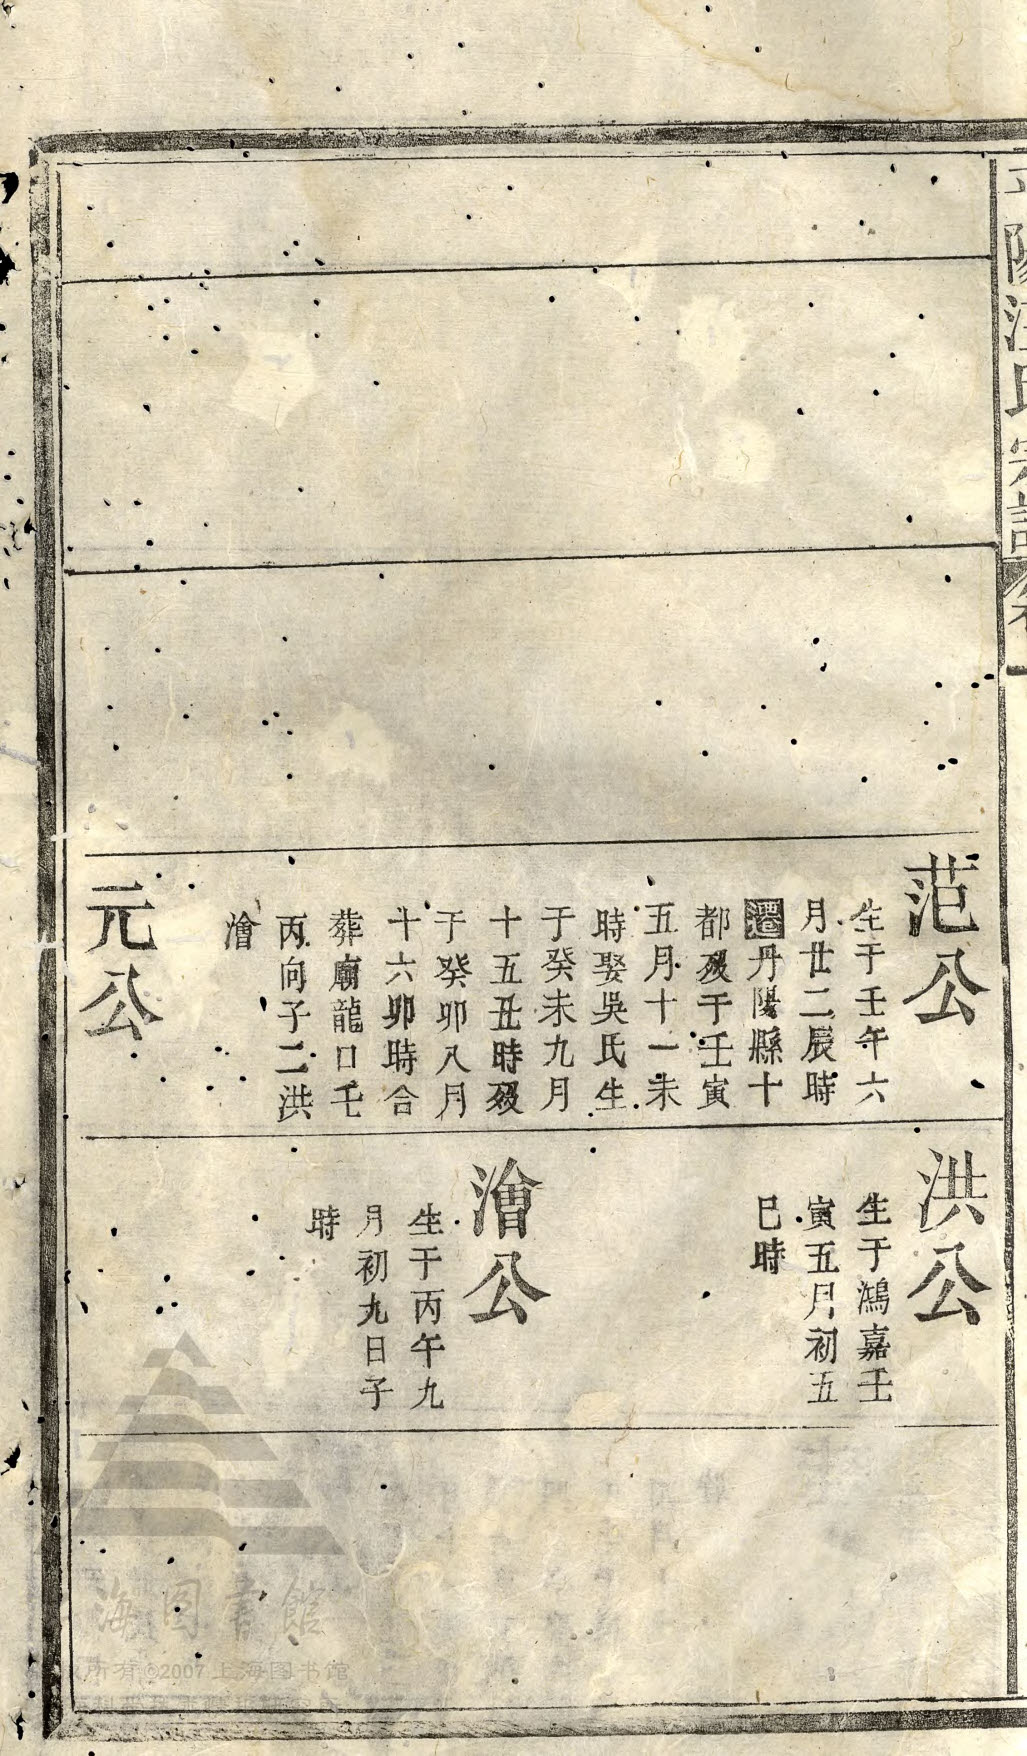 陽汪氏宗譜
范公
生于壬午六
月廿二辰時
遷丹陽縣十
都殁于壬寅
五月十一未
時娶吳氏生
于癸未九月
十五丑時殁
于癸卯八月
十六卯時合
葬廟龍口壬
丙向子二洪
澮
元公
洪公
生于鴻嘉壬
寅五月初五
巳時
澮公
生于丙午九
月初九日子
時
海图書館
所有©2007上海图书馆